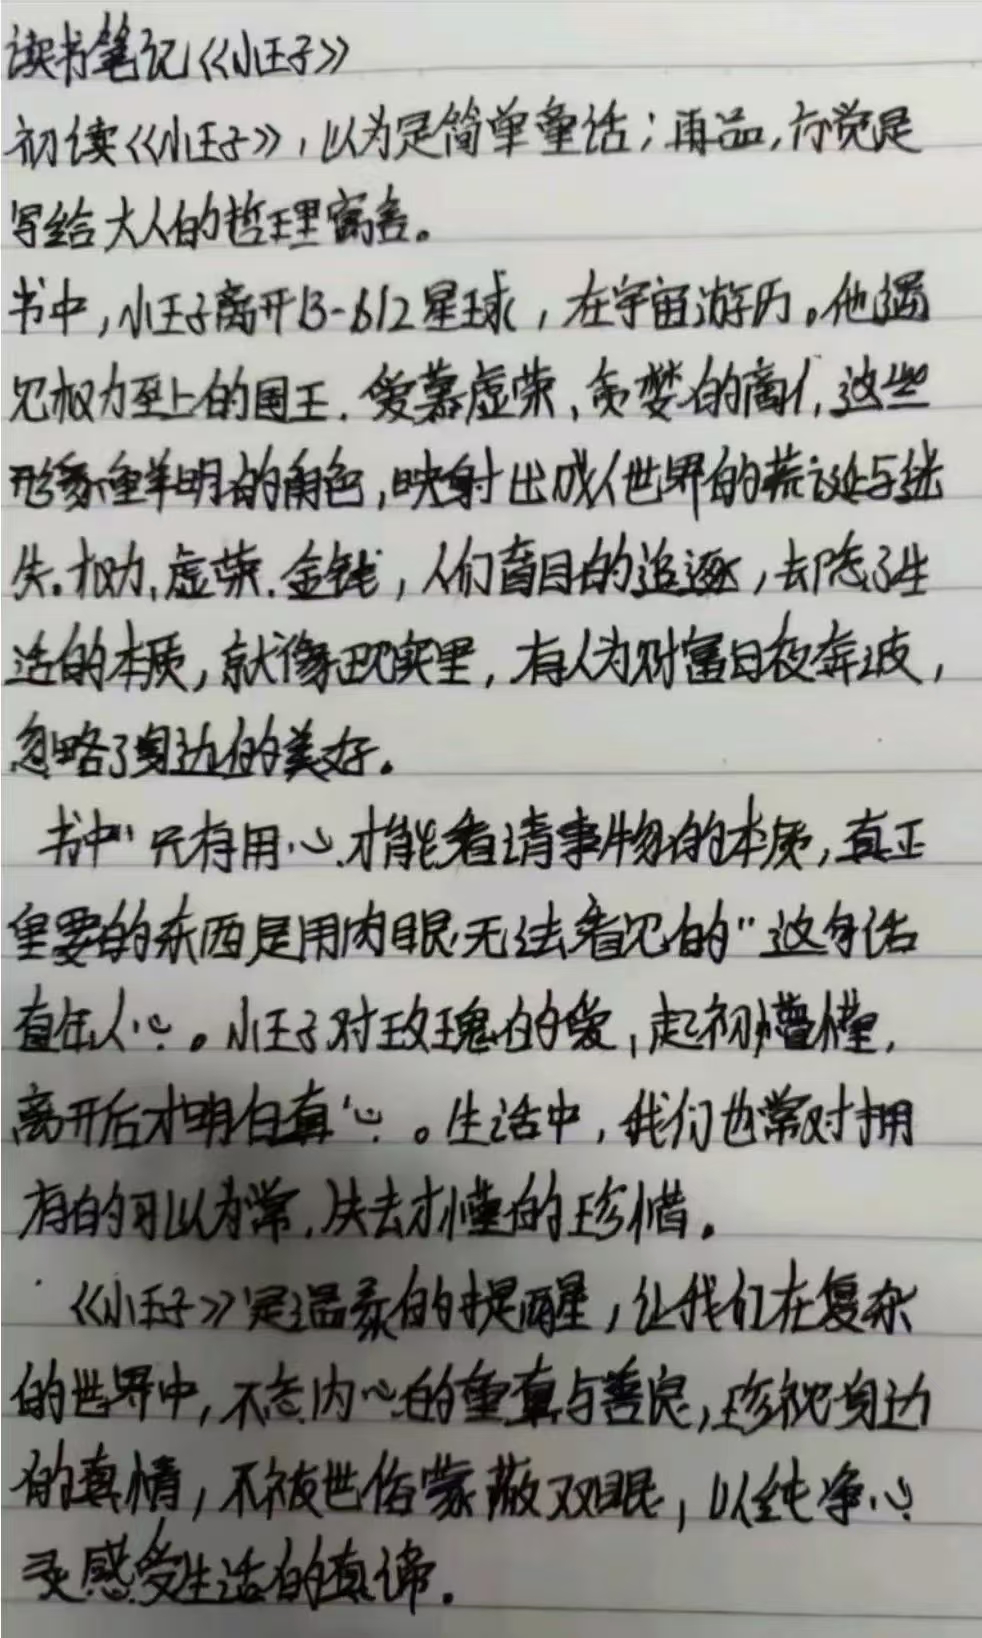 读书笔记《小王子》
初读《小王子》，以为是简单童话；再品，方觉是
写给大人的哲理寓言。
书中，小王子离开B-612星球，在宇宙游历。他遇
见权力至上的国王、爱慕虚荣、贪婪的商人，这些
形象鲜明的角色，映射出成人世界的荒诞与迷
失。权力、虚荣、金钱，人们盲目的追逐，去忘了生
活的本质，就像现实里，有人为财富日夜奔波，
忽略了身边的美好。
书中"只有用心才能看清事物的本质，真正
重要的东西是用肉眼无法看见的"这句话
直击人心。小王子对玫瑰的爱，起初懵懂，
离开后才明白真心。生活中，我们也常对拥
有的习以为常，失去才懂的珍惜。
《小王子》是温柔的提醒，让我们在复杂
的世界中，不忘内心的童真与善良，珍视身边
的真情，不被世俗蒙蔽双眼，以纯净心
灵感受生活的真谛。